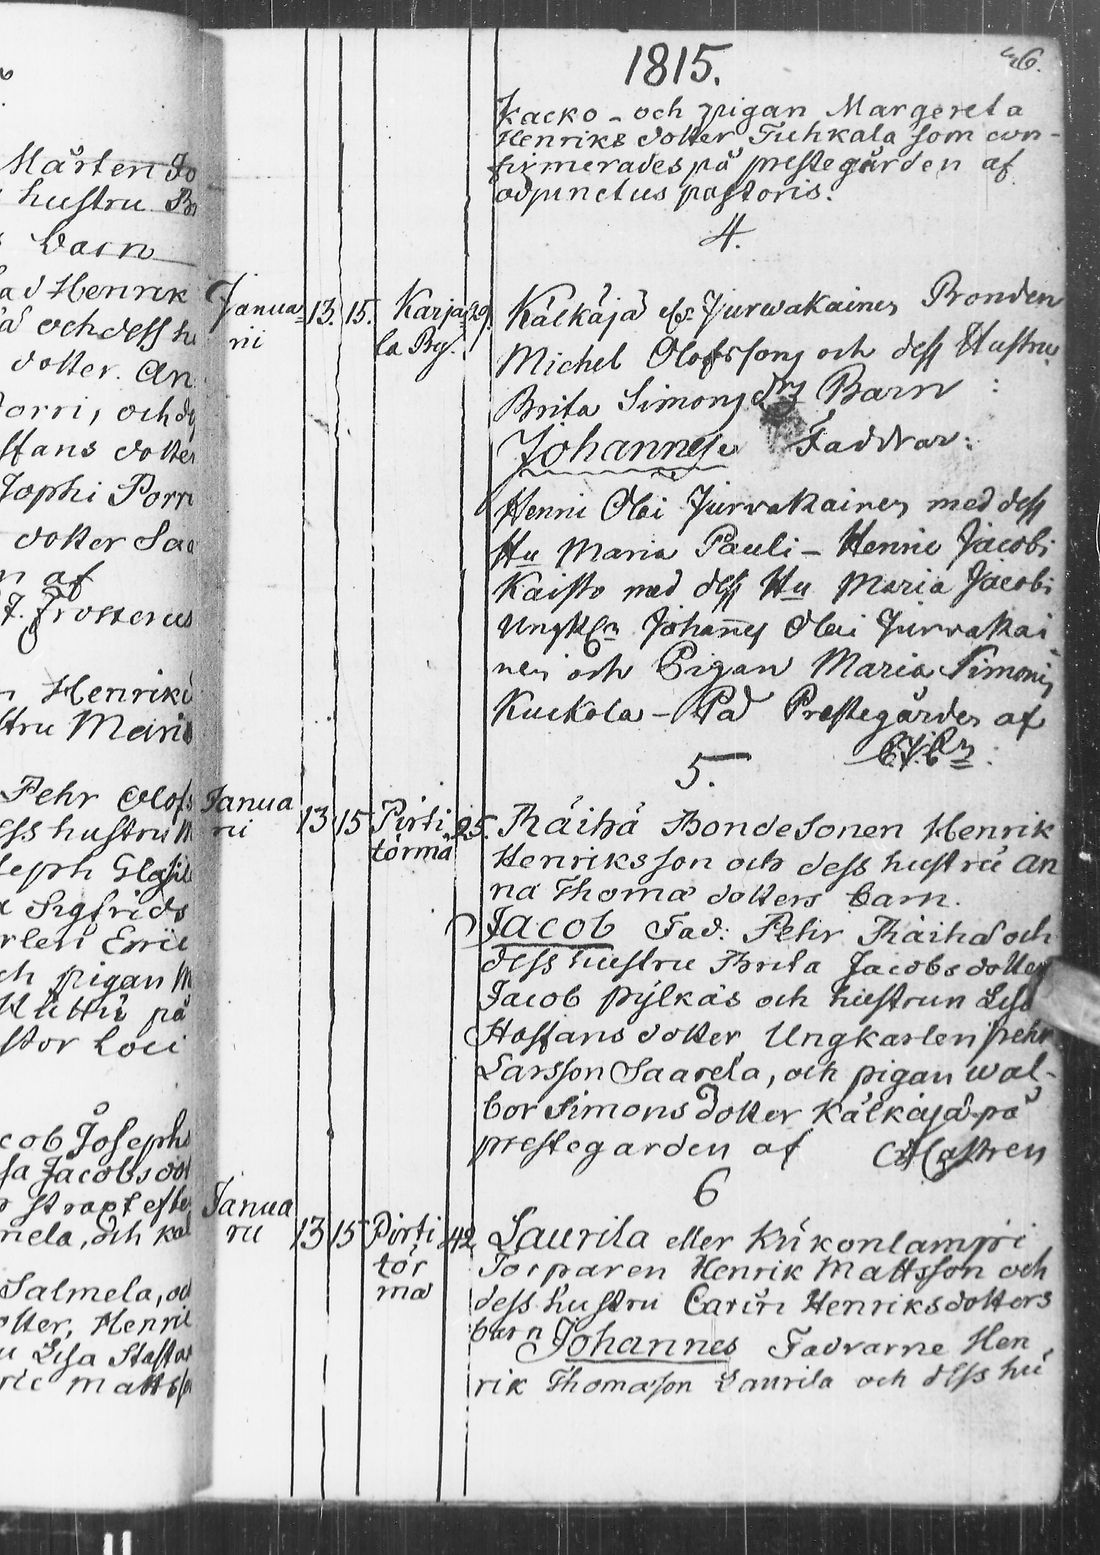 1815.
36.
Kacko - och pigan Margereta
Henriks dotter Tuhkala som con-
firmerades på prestegården af
adjunctus pastoris.
4.
Janua- 13. 15. Karja- 29. Kälkäjä els. Jurwakainen Bonden
rii la By. Michel Olofssons och dess Hustru
Brita Simons drs Barn :
Johannes Faddrar:
Henric Olai Jurwakainen med dess
Hu Maria Pauli - Henric Jacobi
Kaisto med dess Hu Maria Jacobi
Ungkln Johannes Olai Jurwakai
nen och Pigan Maria Simonis
Kuckola - På Prestegården af
5.
Janua 13 15 Pirti 25. Räihä Bondesonen Henrik
rii törmä Henriksson och dess hustru An
na Thomä dotters barn.
Jacob Fad: Pehr Räihä och
dess hustru Brita Jacobsdotter
Jacob Pÿlkäs och hustrun Lisa
Staffans dotter Ungkarlen Pehr
Larsson Saarela, och pigan Wal-
bor Simons dotter Kälkäjä på
prestegarden af Castren
6
Janua 13 15 Pirti 42 Laurila eller Kukonlampi
rii tör Torparen Henrik Mattsson och
ma dess hustru Carin Henriksdotters
barn Johannes Fadrarne Hen
rik Thomason Laurila och dess hu
Mårten Jo
hustru Br
barn
Henrik
och dess hu
dotter. An
Porri, och
staffans dotter
Josephi Porri
dotter Saa
af
J. Frosterus
Henriki
Maria
Pehr Olofs
hustru M
Sigfrids
Eric
och pigan M
på
Pastor Loci
Jacob Josephs
Lisa Jacobsdot
Salmela, och
dotter, Henrik
Lisa Staffa
Eric Matts